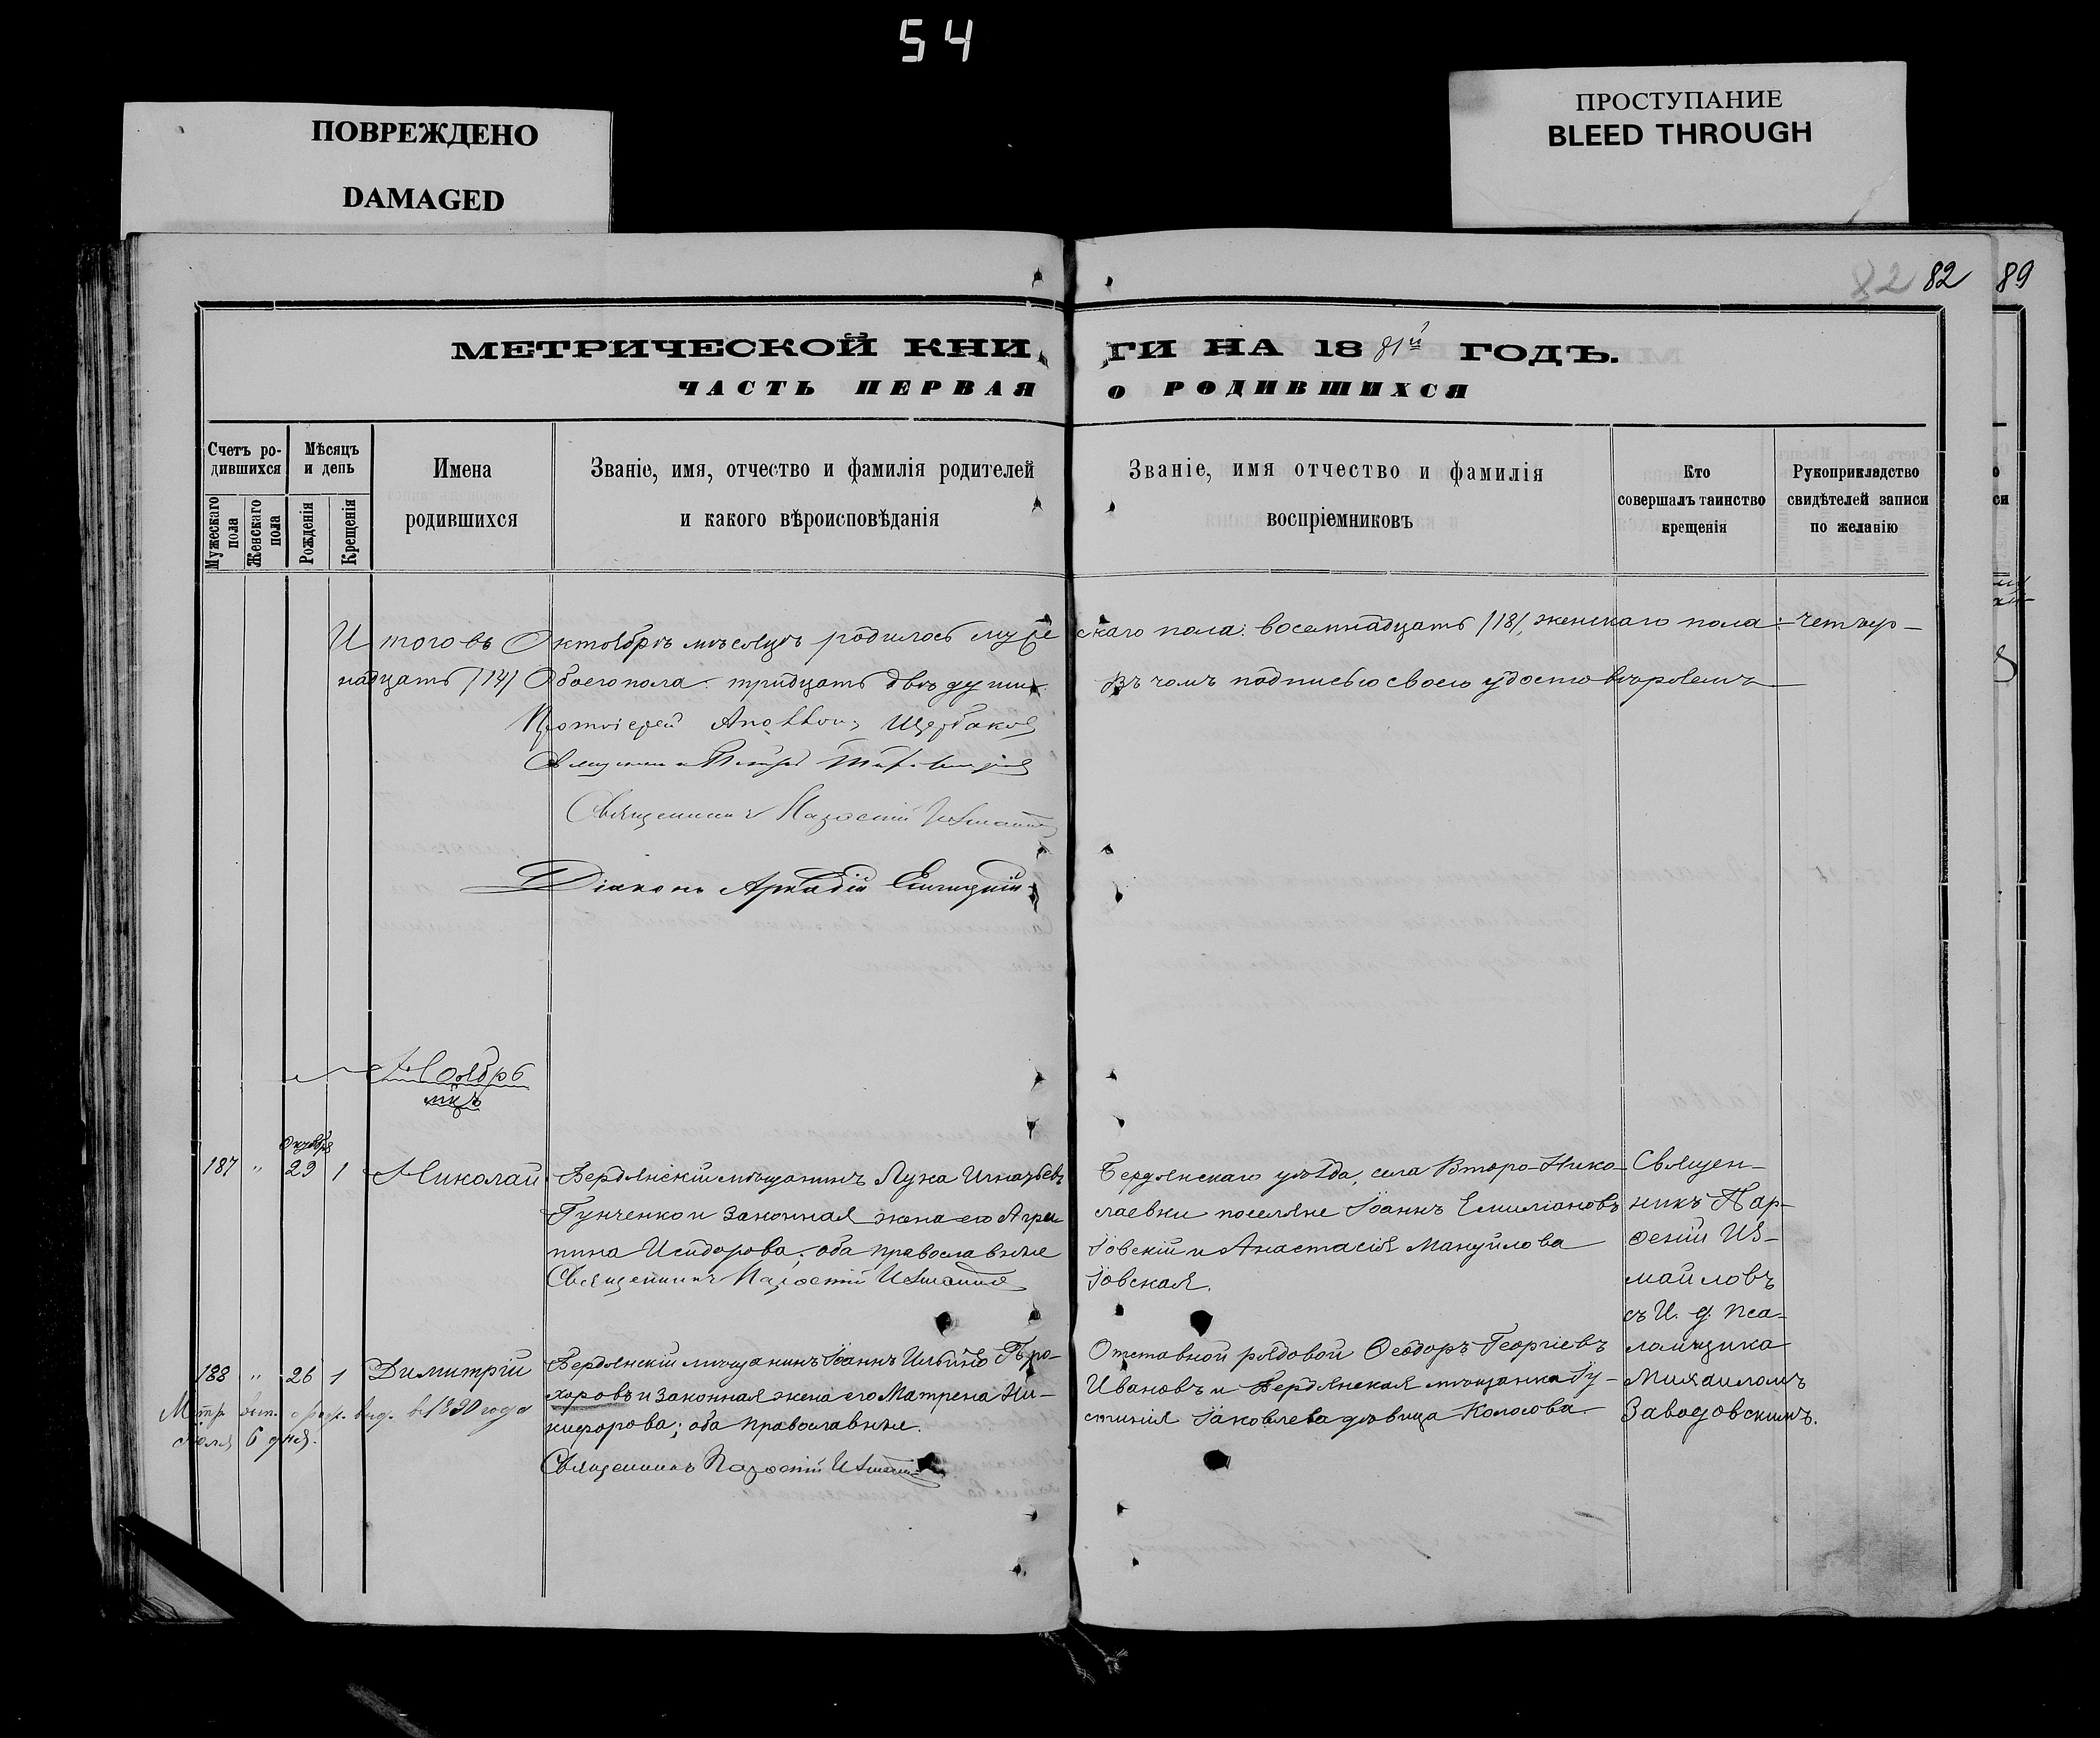 54
ПОВРЕЖДЕНО
DAMAGED
ПРОСТУПАНИЕ
BLEED THROUGH
82 82 89
МЕТРИЧЕСКОЙ КНИГИ НА 1881й ГОДЪ.
ЧАСТЬ ПЕРВАЯ О РОДИВШИХСЯ
Счетъ ро-
дившихся
Мужескаго пола
Женскаго пола
Мѣсяцъ
и день
Рожденія
Крещенія
Имена
родившихся
Званіе, имя, отчество и фамилія родителей
и какого вѣроисповѣданія
Званіе, имя отчество и фамилія
воспріемниковъ
Кто
совершалъ таинство
крещенія
Рукоприкладство
свидѣтелей записи
по желанію
Итого въ Октябрѣ мѣсяцѣ родилось мужескаго пола: восемнадцать /18/, женскаго пола: четыр-
надцать /14/ Обоего пола: тридцать двѣ души. Въ чемъ подписью своею удостовѣряемъ
Протоіерей Аполлонъ Щербаковъ
Священникъ Петръ
Священникъ Парѳеній Измаиловъ
Діаконъ Аркадій
Ноябрь
мцъ
Октября
187 " 29 1 Николай
Бердянскій мѣщанинъ Лука Игнатьевъ
Гунченко и законная жена его Агри-
пина Исидорова; оба православные
Священникъ Парѳеній Измаиловъ
Бердянскаго уѣзда, села Второ-Нико-
лаевки поселяне Іоаннъ Емиліановъ
Іовскій и Анастасія Мануйлова
Іовская.
Священ-
никъ Пар-
ѳеній Из-
маиловъ
съ И. д. Пса-
ломщика
Михаиломъ
Заводовскимъ.
188 " 26 1 Димитрій
Метр. вып. выд. в 1890 года
6 дня.
Бердянскій мѣщанинъ Іоаннъ Ильинъ Про-
хоровъ и законная жена его Матрена Ни-
кифорова; оба православные.
Священникъ Парѳеній Измаиловъ
Отставной рядовой Ѳеодоръ Георгіевъ
Ивановъ и Бердянская мѣщанка Іу-
стинія Іаковлева дѣвица Колосова